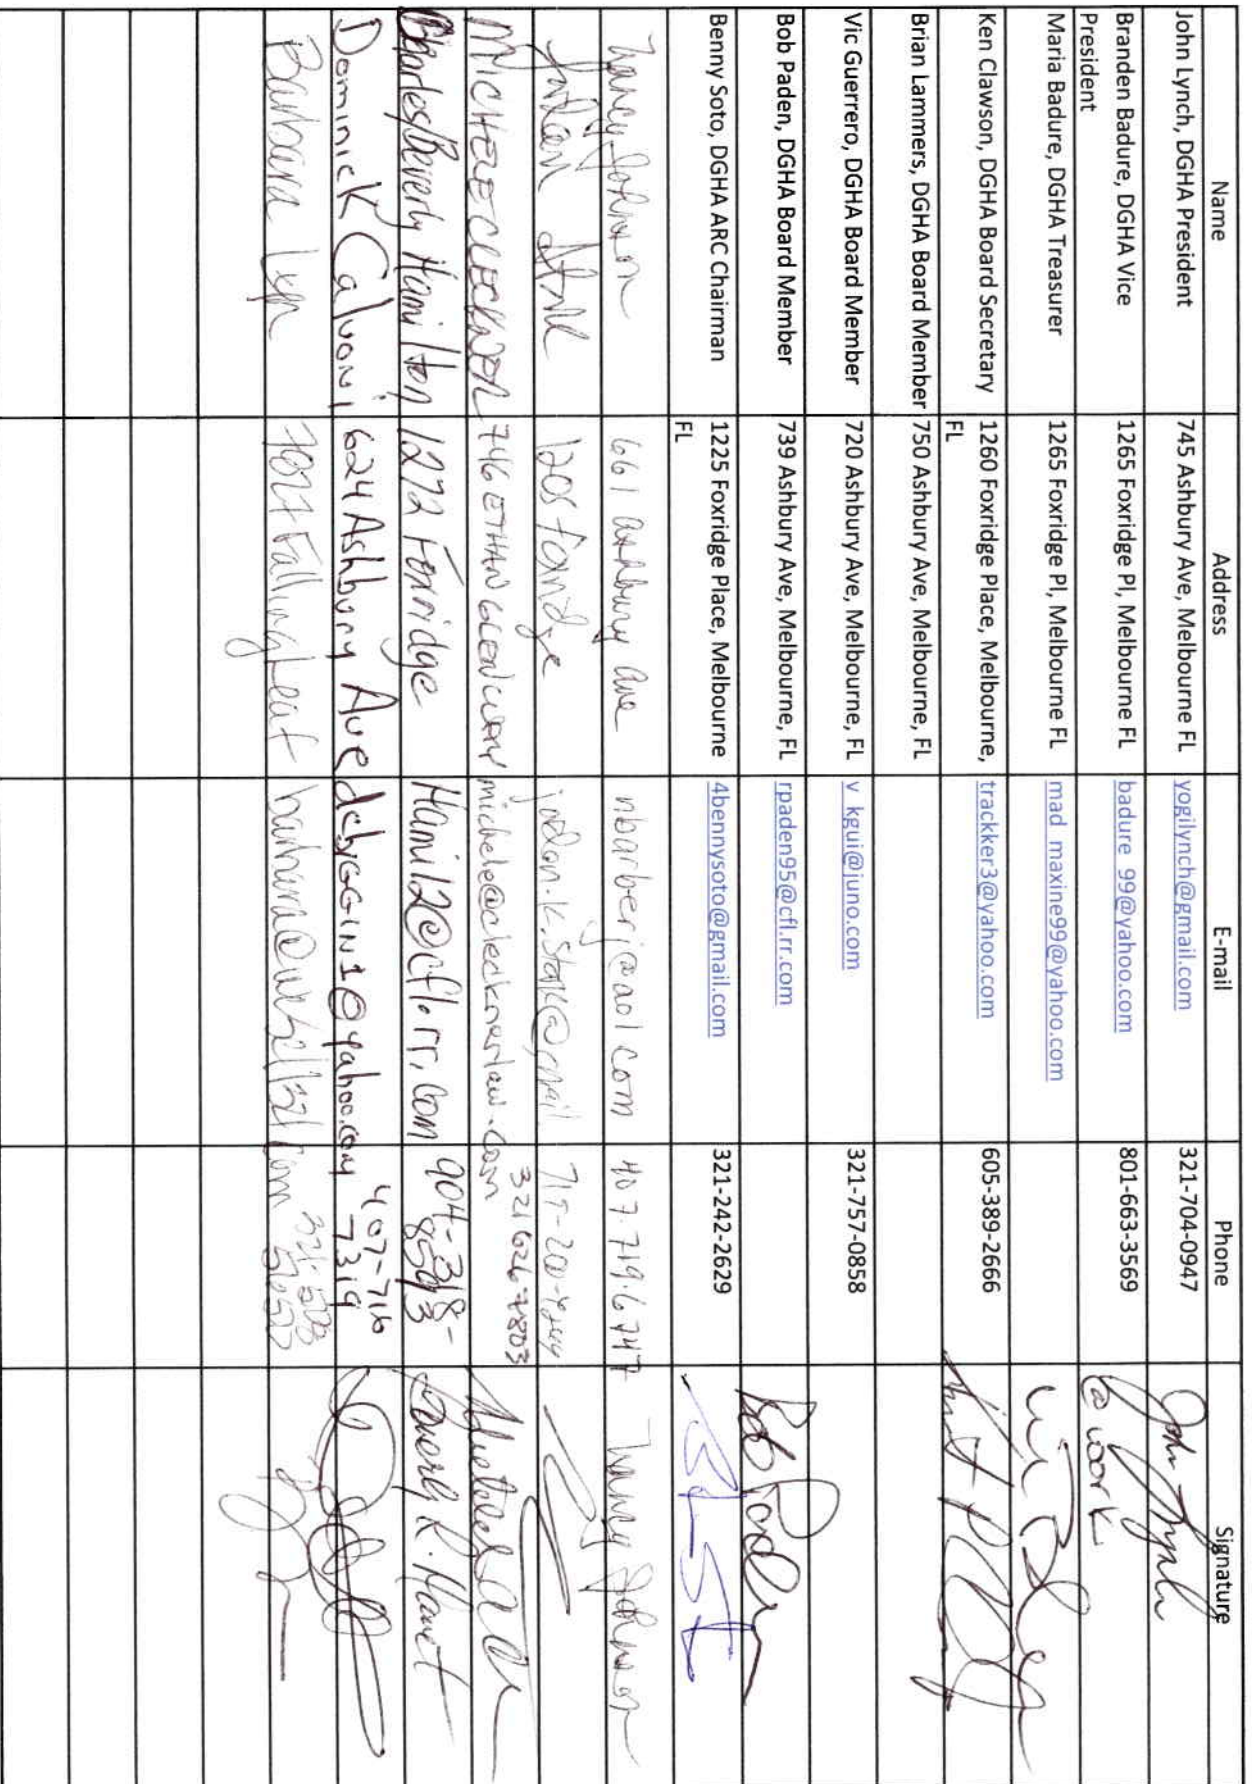 Name Address E-mail Phone Signature
John Lynch, DGHA President 745 Ashbury Ave, Melbourne FL yogilynch@gmail.com 321-704-0947 John Lynch
Branden Badure, DGHA Vice
President 1265 Foxridge Pl, Melbourne FL badure_99@yahoo.com 801-663-3569 @ work
Maria Badure, DGHA Treasurer 1265 Foxridge Pl, Melbourne FL mad_maxine99@yahoo.com
Ken Clawson, DGHA Board Secretary 1260 Foxridge Place, Melbourne,
FL trackker3@yahoo.com 605-389-2666
Brian Lammers, DGHA Board Member 750 Ashbury Ave, Melbourne, FL
Vic Guerrero, DGHA Board Member 720 Ashbury Ave, Melbourne, FL v_kgui@juno.com 321-757-0858
Bob Paden, DGHA Board Member 739 Ashbury Ave, Melbourne, FL rpaden95@cfl.rr.com Bob Paden
Benny Soto, DGHA ARC Chairman 1225 Foxridge Place, Melbourne
FL 4bennysoto@gmail.com 321-242-2629
Nancy Johnson 661 Ashbury Ave nbarberj@aol.com 407.719.6747 Nancy Johnson
Jordan 1205 Foxridge
MICHELE CLECKNER 746 ETHAN GLEN WAY michele@clecknerlaw.com 321 626 7803
Charles/Beverly Hamilton 1272 Foxridge Hamil2@cfl.rr.com 904-318-
8593
Dominick Calvoni 624 Ashbury Ave dcbiGGiN1@yahoo.com 407-716
7319
Barbara Lyn 7027 Falling Leaf